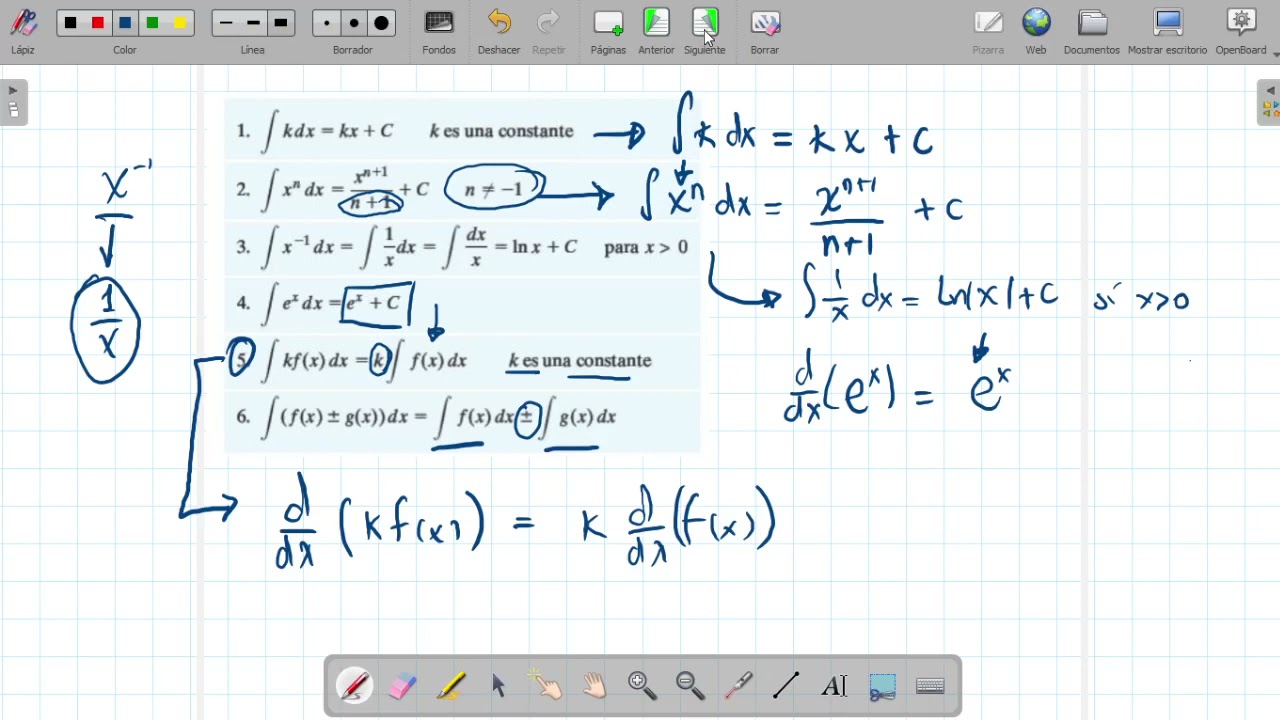 Lápiz Color Línea Borrador Fondos Deshacer Repetir Páginas Anterior Siguiente Borrar Pizarra Web Documentos Mostrar escritorio OpenBoard
1. ∫ k dx = kx + C k es una constante → ∫ k dx = k x + C
2. ∫ xⁿ dx = xⁿ⁺¹/(n + 1) + C n ≠ −1 → ∫ xⁿ dx = xⁿ⁺¹/(n+1) + C
x⁻¹
3. ∫ x⁻¹ dx = ∫ 1/x dx = ∫ dx/x = ln x + C para x > 0
∫ 1/x dx = ln|x| + C si x>0
1/x
4. ∫ eˣ dx = eˣ + C
5. ∫ kf(x) dx = k ∫ f(x) dx k es una constante
d/dx (eˣ) = eˣ
6. ∫ (f(x) ± g(x)) dx = ∫ f(x) dx ± ∫ g(x) dx
d/dx (k f(x)) = k d/dx (f(x))
AI